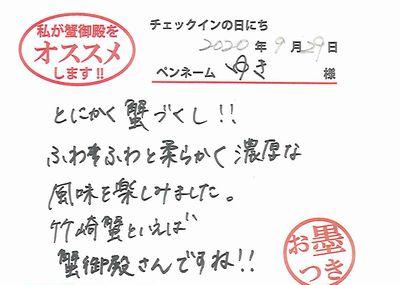 私が蟹御殿を
オススメ
します!!
チェックインの日にち
2020年9月29日
ペンネーム ゆき 様
とにかく蟹づくし!!
ふわふわと柔らかく濃厚な
風味を楽しみました。
竹崎蟹といえば
蟹御殿さんですね!!
お墨
つき